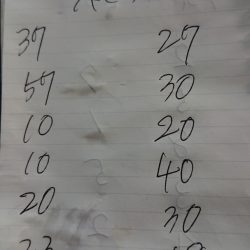 37 27
57 30
10 20
10 40
20 30